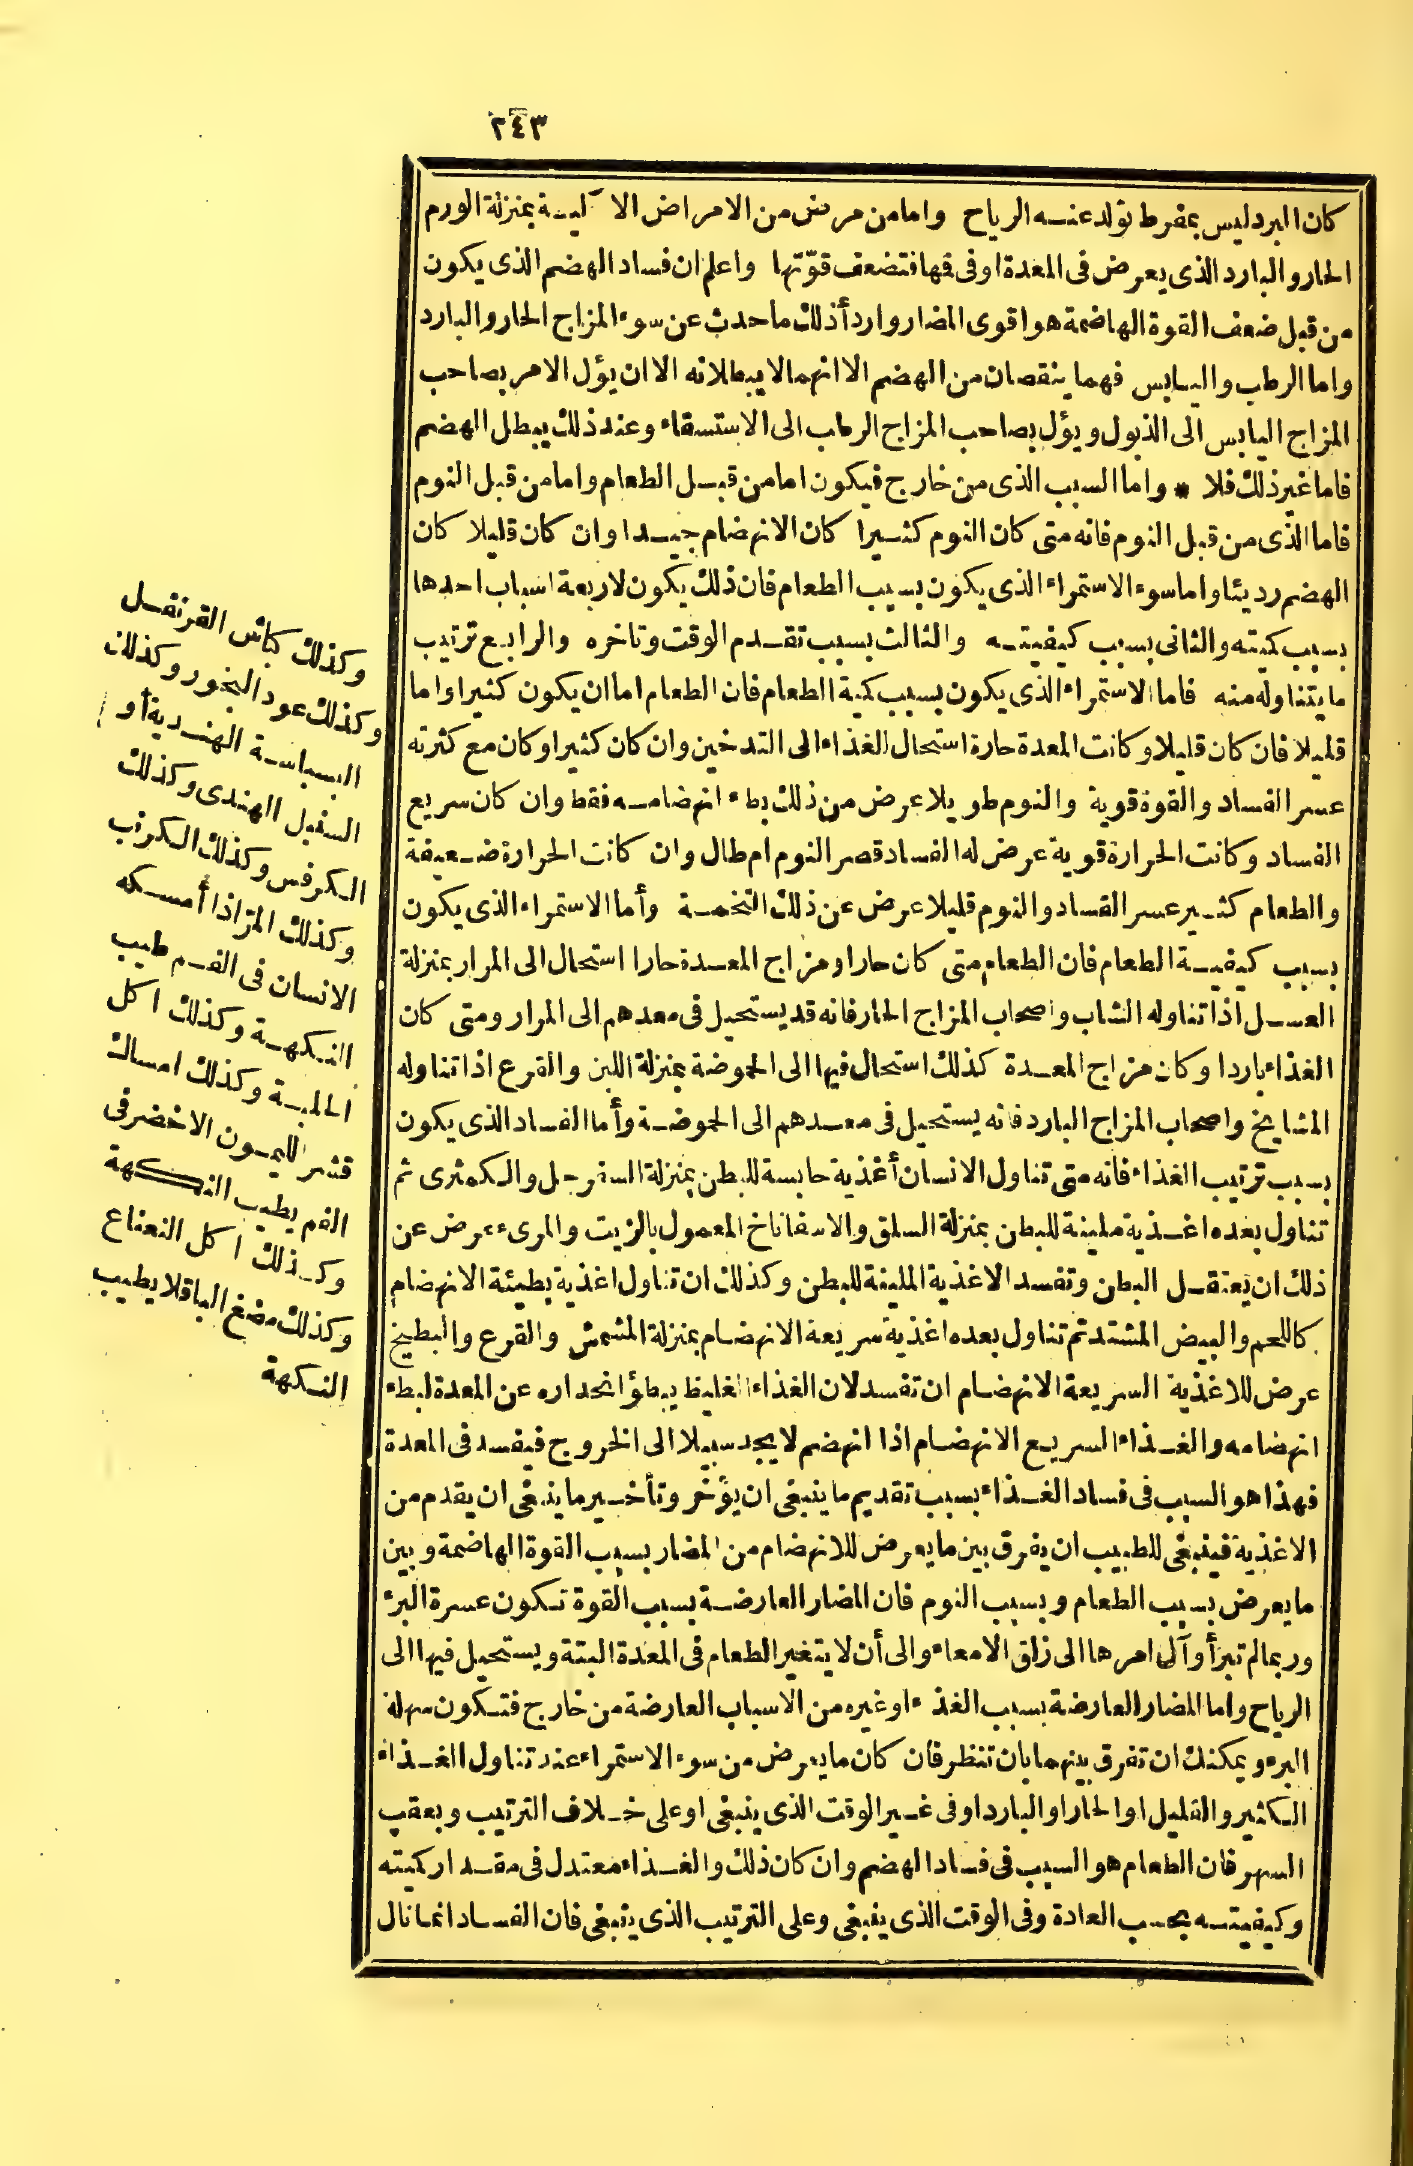 ٢٤٣
كان البرد ليس بمفرط تولد عنه الرياح واما من مرض من الامراض الآلية بمنزلة الورم
الحار والبارد الذى يعرض فى المعدة او فى فمها فتضعف قوّتها واعلم ان فساد الهضم الذى يكون
من قبل ضعف القوة الهاضمة هو اقوى المضار وارد أذلك ما حدث عن سوء المزاج الحار والبارد
واما الرطب واليابس فهما ينقصان من الهضم الا انهما لا يبطلانه الا ان يؤل الامر بصاحب
المزاج اليابس الى الذبول ويؤل بصاحب المزاج الرطب الى الاستسقاء وعند ذلك يبطل الهضم
فاما غير ذلك فلا * واما السبب الذى من خارج فيكون اما من قبل الطعام واما من قبل النوم
فاما الذى من قبل النوم فانه متى كان النوم كثيرا كان الانهضام جيدا وان كان قليلا كان
الهضم رديئا واما سوء الاستمراء الذى يكون بسبب الطعام فان ذلك يكون لاربعة اسباب احدها
بسبب كميته والثانى بسبب كيفيته والثالث بسبب تقدم الوقت وتاخره والرابع ترتيب
ما يتناوله منه فاما الاستمراء الذى يكون بسبب كمية الطعام فان الطعام اما ان يكون كثيرا واما
قليلا فان كان قليلا وكانت المعدة حارة استحال الغذاء الى التدخين وان كان كثيرا وكان مع كثرته
عسر الفساد والقوة قوية والنوم طويلا عرض من ذلك بطء انهضامه فقط وان كان سريع
الفساد وكانت الحرارة قوية عرض له الفساد قصر النوم ام طال وان كانت الحرارة ضعيفة
والطعام كثير عسر الفساد والنوم قليلا عرض عن ذلك التخمة وأما الاستمراء الذى يكون
بسبب كيفية الطعام فان الطعام متى كان حارا ومزاج المعدة حارا استحال الى المرار بمنزلة
العسل اذا تناوله الشاب واصحاب المزاج الحار فانه قد يستحيل فى معدهم الى المرار ومتى كان
الغذاء باردا وكان مزاج المعدة كذلك استحال فيها الى الحموضة بمنزلة اللبن والقرع اذا تناوله
المشايخ واصحاب المزاج البارد فانه يستحيل فى معدهم الى الحموضة وأما الفساد الذى يكون
بسبب ترتيب الغذاء فانه متى تناول الانسان أغذية حابسة للبطن بمنزلة السفرجل والكمثرى ثم
تناول بعده اغذية ملينة للبطن بمنزلة السلق والاسفاناخ المعمول بالزيت والمرىء عرض عن
ذلك ان يعتقل البطن وتفسد الاغذية الملينة للبطن وكذلك ان تناول اغذية بطيئة الانهضام
كاللحم والبيض المشتد ثم تناول بعده اغذية سريعة الانهضام بمنزلة المشمش والقرع والبطيخ
عرض للاغذية السريعة الانهضام ان تفسد لان الغذاء الغليظ يبطؤ انحداره عن المعدة لبطء
انهضامه والغذاء السريع الانهضام اذا انهضم لا يجد سبيلا الى الخروج فيفسد فى المعدة
فهذا هو السبب فى فساد الغذاء بسبب تقديم ما ينبغى ان يؤخر وتأخير ما ينبغى ان يقدم من
الاغذية فينبغى للطبيب ان يفرق بين ما يعرض للانهضام من المضار بسبب القوة الهاضمة وبين
ما يعرض بسبب الطعام وبسبب النوم فان المضار العارضة بسبب القوة تكون عسرة البرء
وربما لم تبرأ وآل امرها الى زلق الامعاء والى أن لا يتغير الطعام فى المعدة البتة ويستحيل فيها الى
الرياح واما المضار العارضة بسبب الغذ ء او غيره من الاسباب العارضة من خارج فتكون سهلة
البرء ويمكنك ان تفرق بينهما بان تنظر فان كان ما يعرض من سوء الاستمراء عند تناول الغذاء
الكثير والقليل او الحار او البارد او فى غير الوقت الذى ينبغى او على خلاف الترتيب وبعقب
السهر فان الطعام هو السبب فى فساد الهضم وان كان ذلك والغذاء معتدل فى مقدار كميته
وكيفيته بحسب العادة وفى الوقت الذى ينبغى وعلى الترتيب الذى ينبغى فان الفساد انما نال
وكذلك كباش القرنفل
وكذلك عود البخور وكذلك
البسباسة الهندية أو
السنبل الهندى وكذلك
الكرفس وكذلك الكرنب
وكذلك المر اذا أمسكه
الانسان فى الفم طيب
النكهة وكذلك اكل
الحلبة وكذلك امساك
قشر الليمون الاخضر فى
الفم يطيب النكهة
وكذلك اكل النعناع
وكذلك مضغ الباقلا يطيب
النكهة